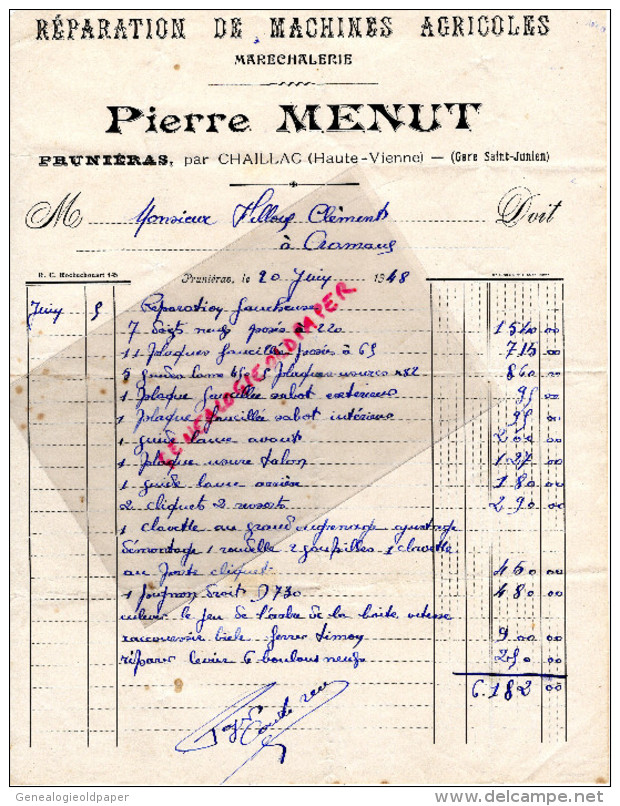 RÉPARATION DE MACHINES AGRICOLES
MARÉCHALERIE
Pierre MENUT
PRUNIÉRAS, par CHAILLAC (Haute-Vienne) — (Gare Saint-Junien)
M Monsieur Clément Doit
à Cramaud
R. C. Rochechouart
Pruniéras, le 20 Juin 1948
Juin 5 Réparation faucheuse
7 doigt neufs posés à 220 1540 00
11 plaques faucille posés à 65 715 00
5 guides lame 5 plaques usures 860
1 plaque faucille sabot exterieur 95 00
1 plaque faucille sabot intérieur 95 00
1 guide lame avant 200 00
1 plaque usure talon 127 00
1 guide lame arrière 180 00
2 cliquets 2 ressorts 290 00
1 clavette au grand engrenage ajustage
démontage 1 rondelle 2 goupilles 1 clavette
au porte cliquet 460 00
1 pougnon droit D 730 480 00
enlever le jeu de l'arbre de la boite vitesse
raccourcir biele ferrer timon 900 00
réparer levier 6 boulons neufs 250 00
6.182 00
GENEALOGIEOLDPAPER
Genealogieoldpaper
www.delcampe.net